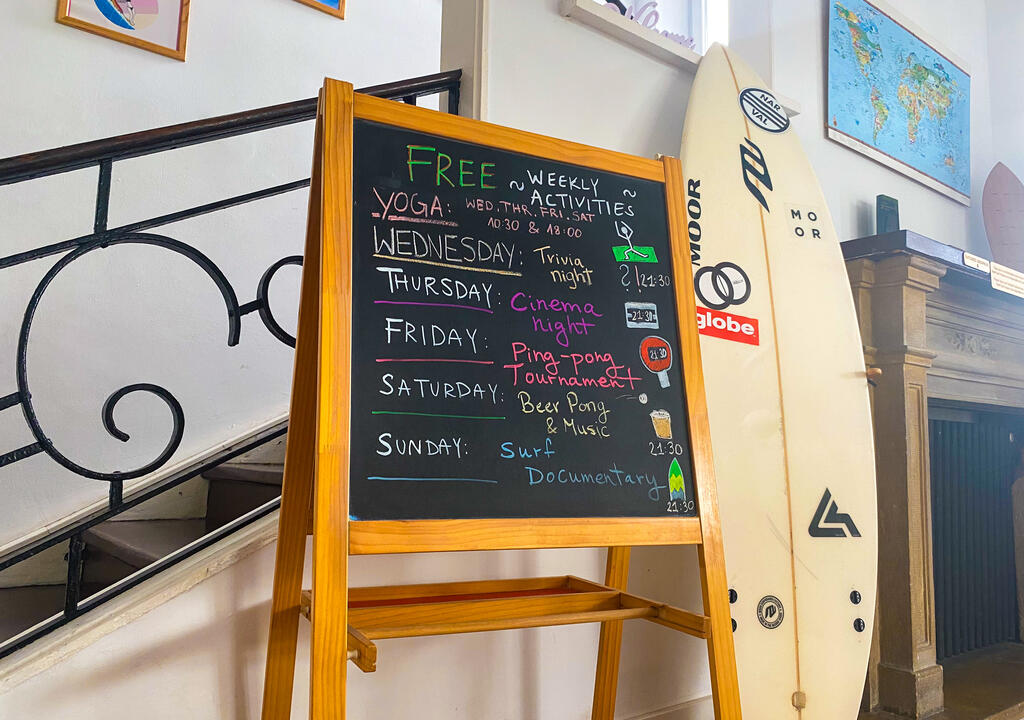 FREE ~ WEEKLY ~
ACTIVITIES
YOGA: WED, THR, FRI, SAT
10:30 & 18:00
WEDNESDAY: Trivia
night ? ! 21:30
THURSDAY: Cinema
night 21:30
FRIDAY: Ping-pong
Tournament 21:30
SATURDAY: Beer Pong
& Music
21:30
SUNDAY: Surf
Documentary
21:30
NAR
VAL
MOOR
MO
OR
globe